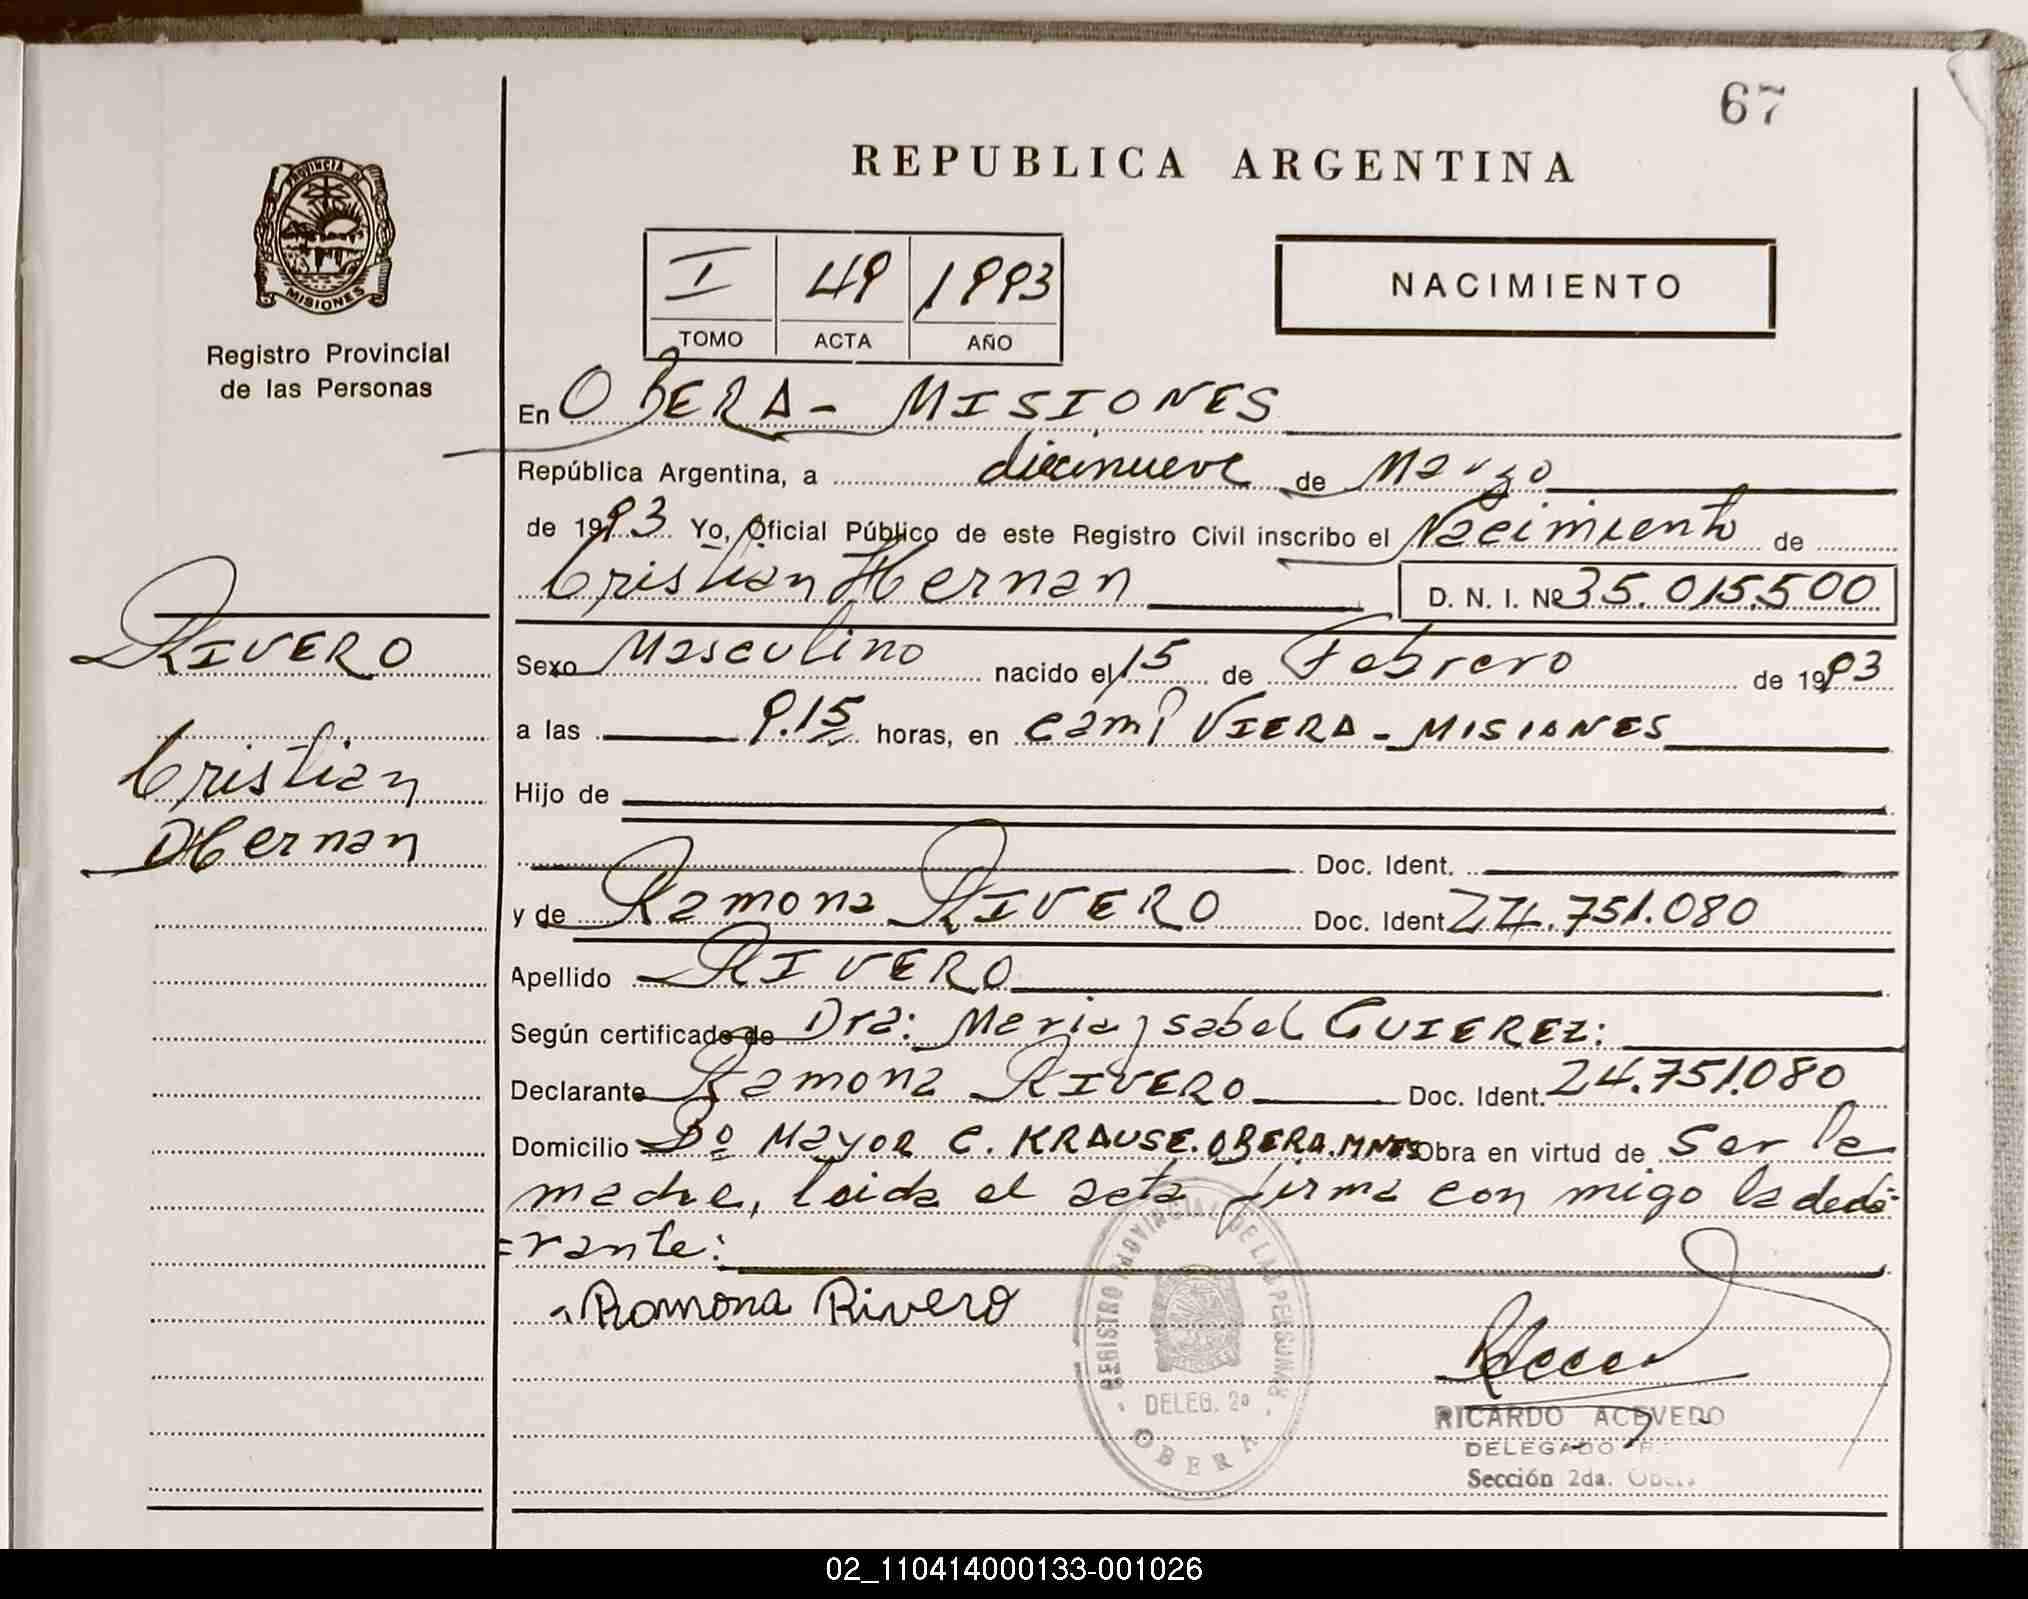 67
REPUBLICA ARGENTINA
PROVINCIA DE
MISIONES
Registro Provincial
de las Personas
I 49 1993
TOMO ACTA AÑO
NACIMIENTO
En OBERA - MISIONES
República Argentina, a diecinueve de Marzo
de 1993 Yo, Oficial Público de este Registro Civil inscribo el Nacimiento de
Cristian Hernan D. N. I. Nº 35.015.500
RIVERO
Cristian
Hernan
Sexo Masculino nacido el 15 de Febrero de 1993
a las 9.15 horas, en Camp VIERA - MISIONES
Hijo de
Doc. Ident.
y de Ramona RIVERO Doc. Ident 24.751.080
Apellido RIVERO
Según certificado de Dra: Maria Ysabel GUIEREZ:
Declarante Ramona RIVERO Doc. Ident. 24.751.080
Domicilio Bº Mayor C. KRAUSE. OBERA. MNES Obra en virtud de Ser la
madre, leida el acta firma con migo la decla=
=rante:
Ramona Rivero
REGISTRO PROVINCIAL DE LAS PERSONAS
DELEG. 2º
OBERA
RICARDO ACEVEDO
DELEGADO
Sección 2da. Oberá
02_110414000133-001026